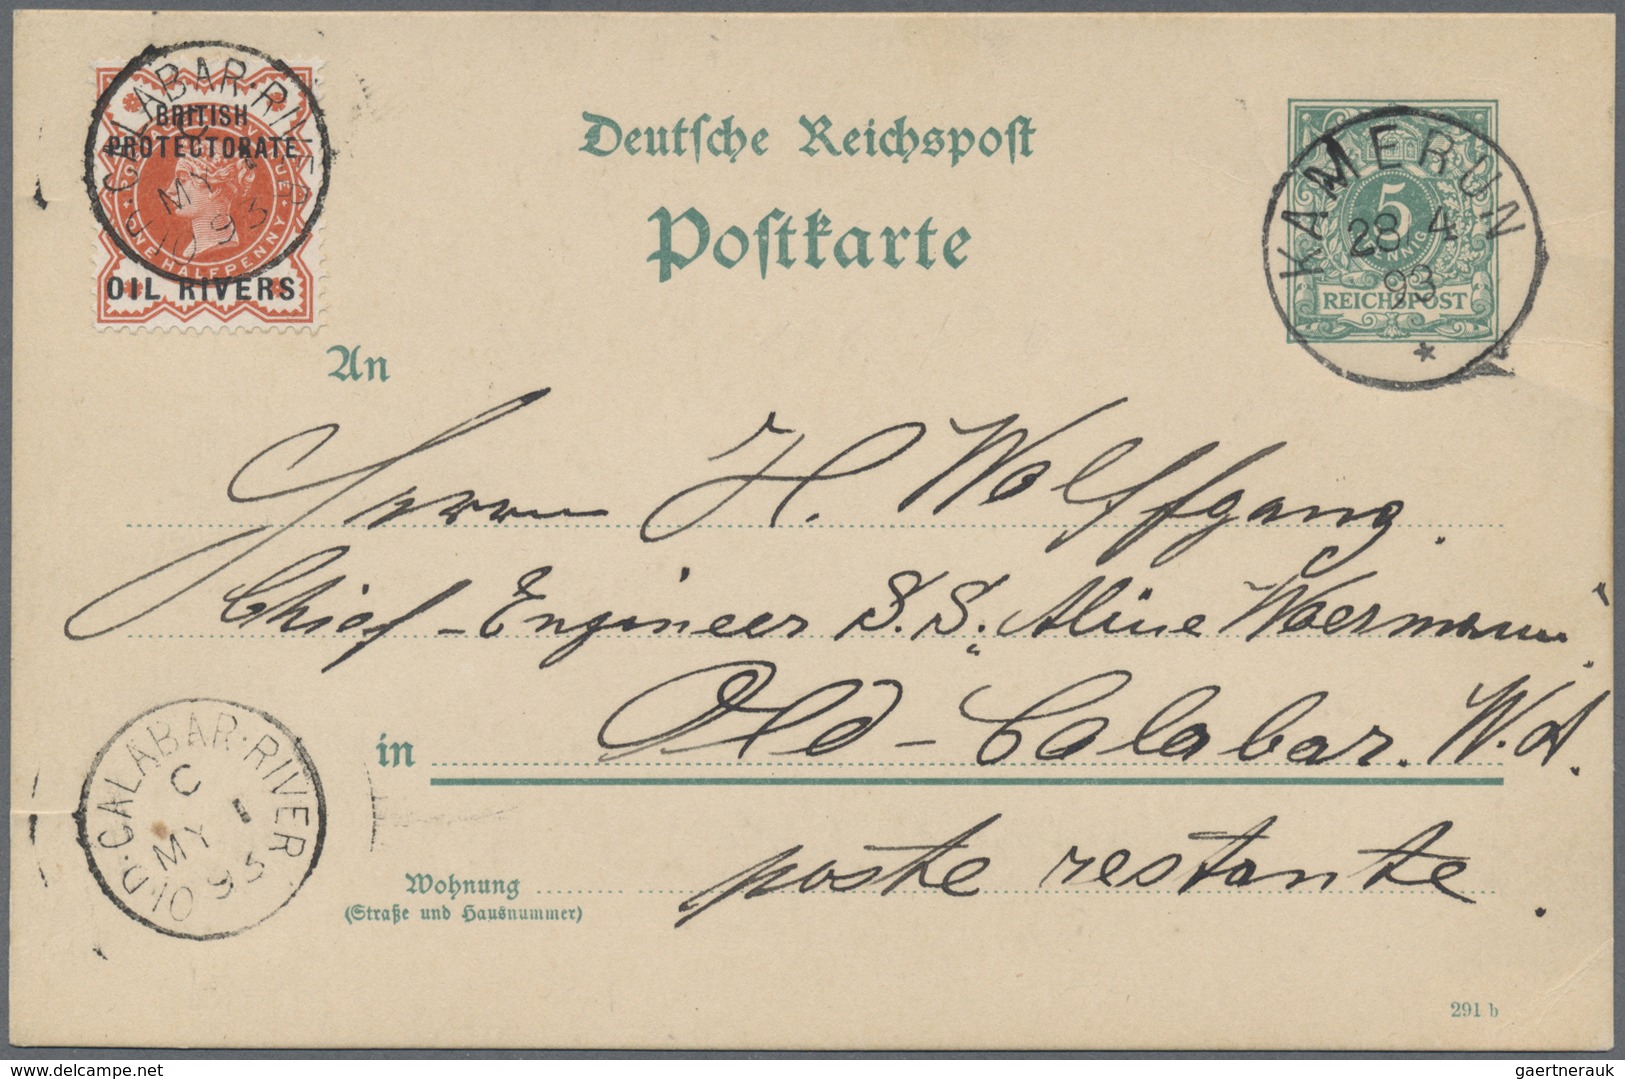 BRITISH
PROTECTORATE
ONE HALFPENNY
OIL RIVERS
OLD·CALABAR·RIVER
C
MY 1
93
Deutsche Reichspost
Postkarte
5
PFENNIG
REICHSPOST
KAMERUN
28 4
93
*
An
Herrn H. Wolffgang.
Chief-Engineer S.S. "Aline Woermann"
in Old-Calabar. W.A.
poste restante.
Wohnung
(Straße und Hausnummer)
OLD·CALABAR·RIVER
C
MY 1
93
291 b
www.delcampe.net
gaertnerauk